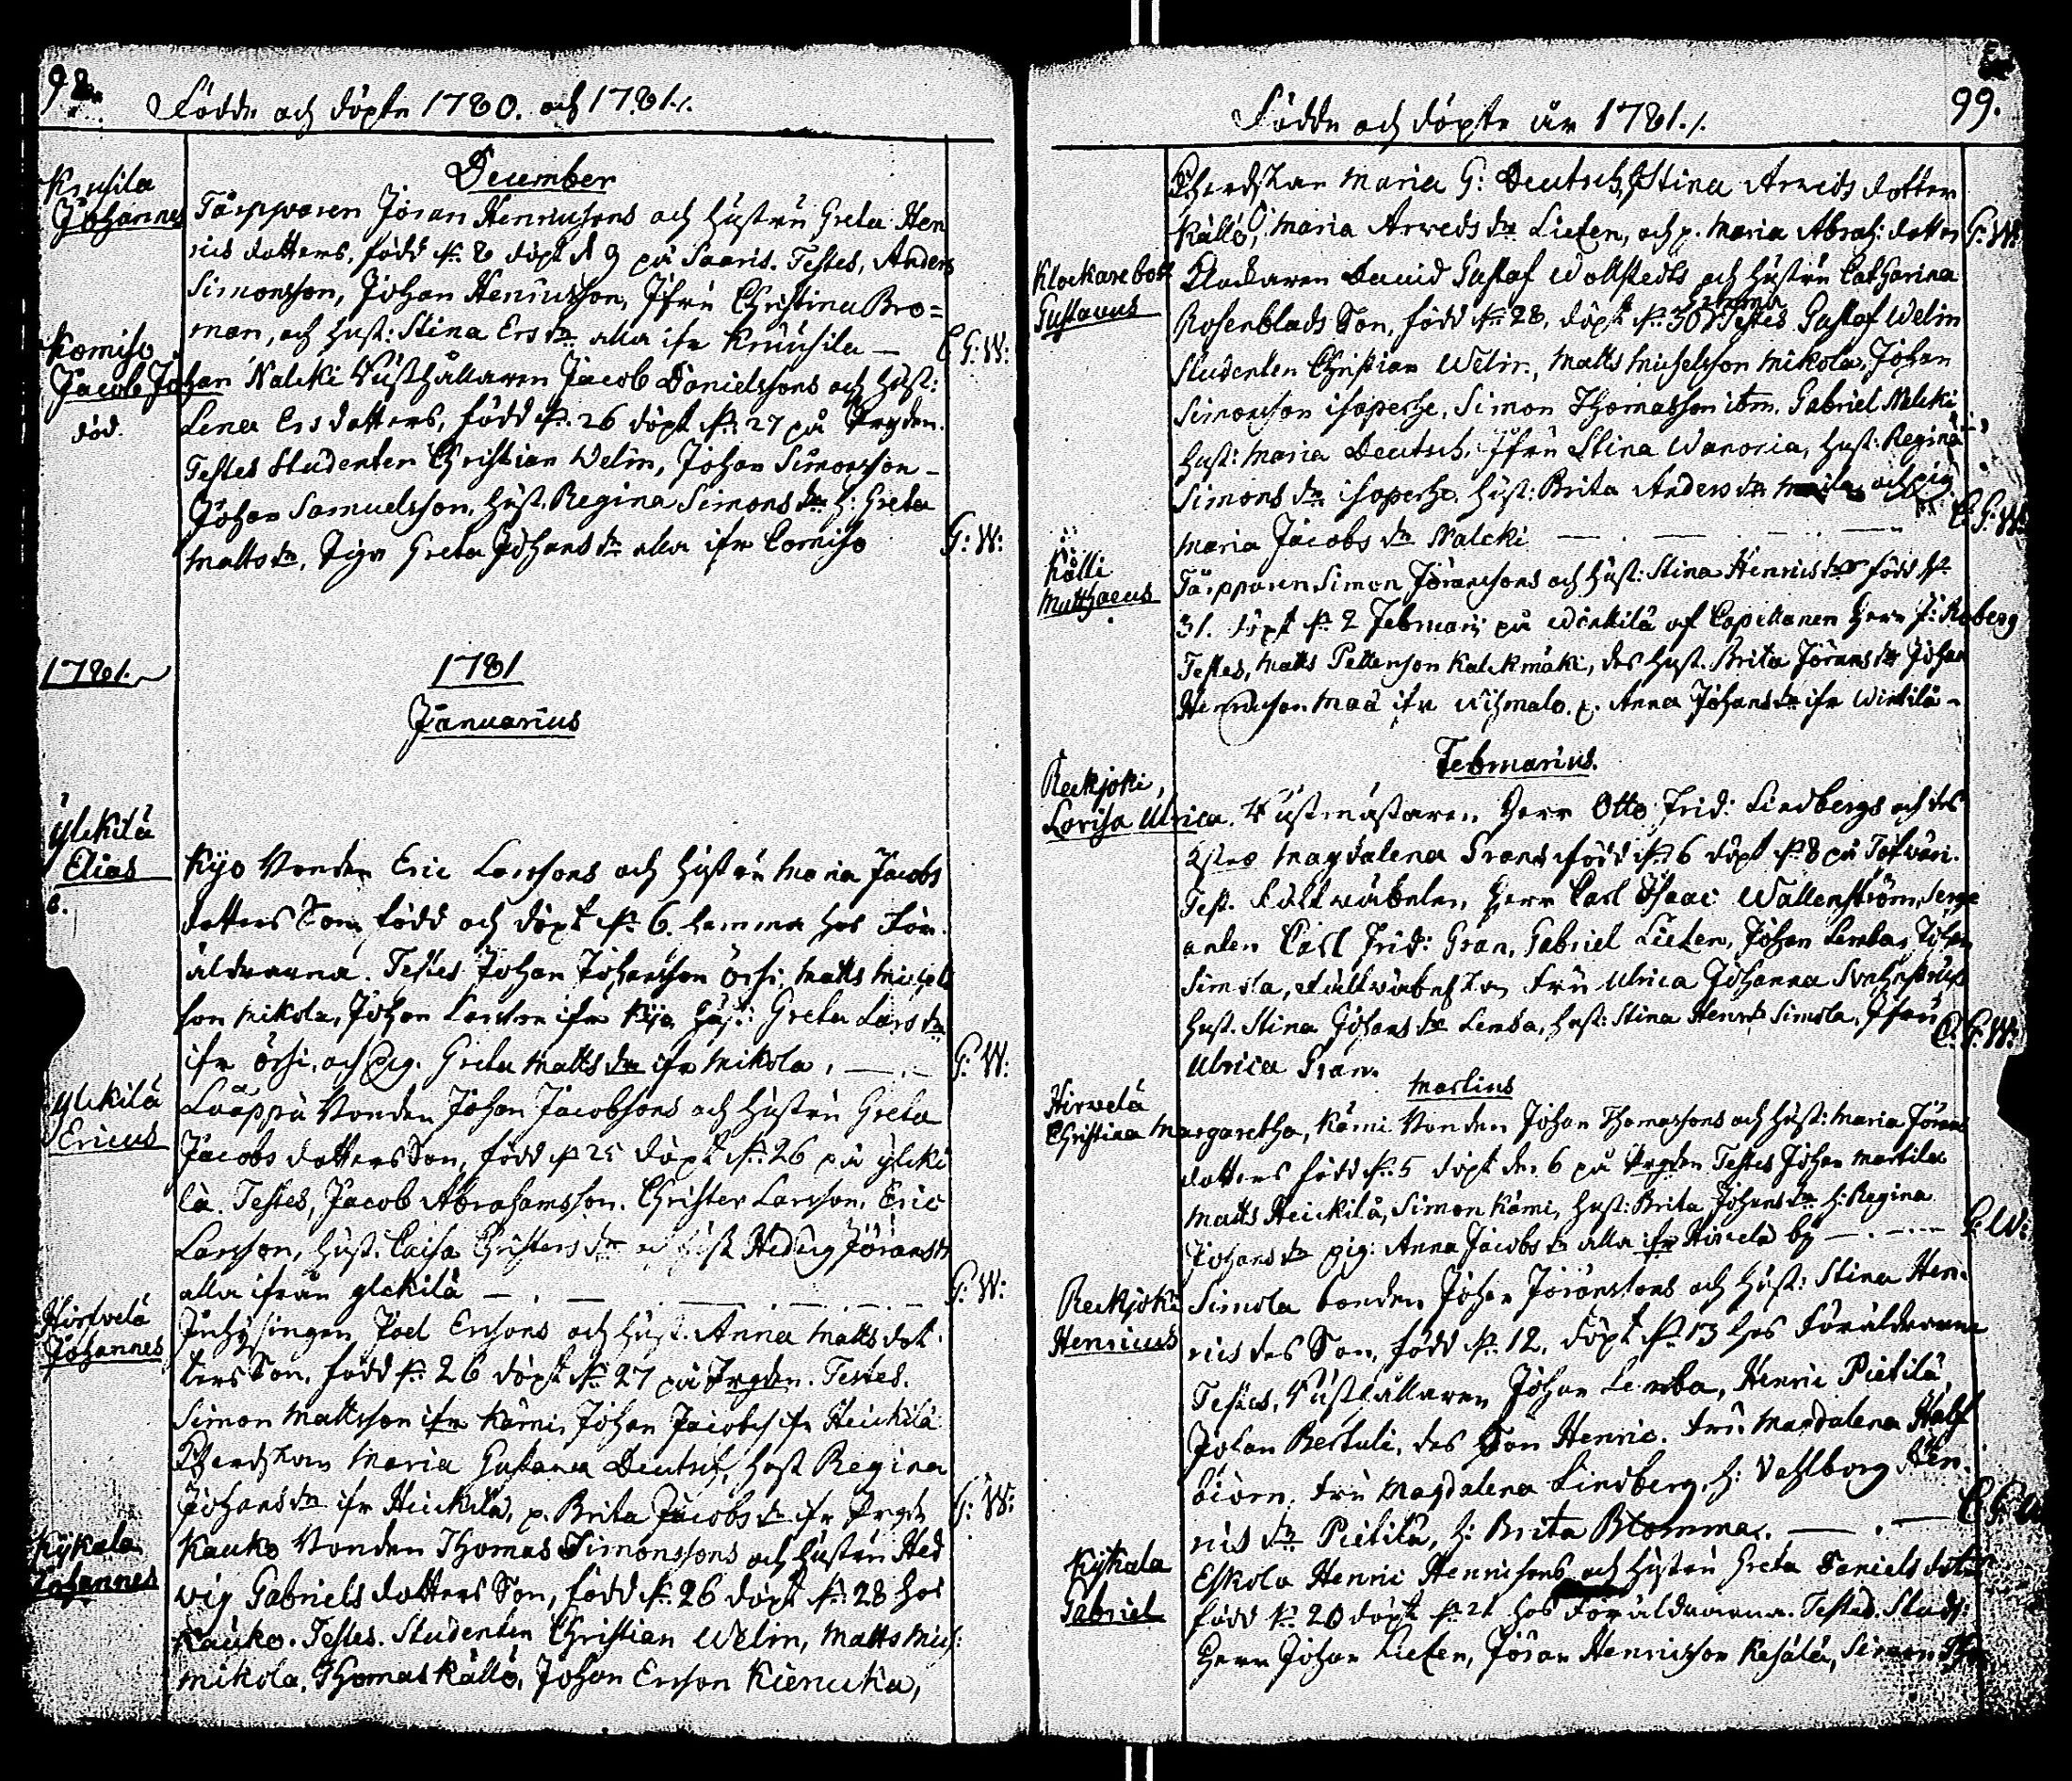 98.
Födde och döpte 1780. och 1781.
December
Krusila
Johannes
Torpparen Jöran Henricsons och hustru Greta Hen
rics dotters, född d. 8 döpt d 9 på Saaris. Testes, Anders
Simonsson, Johan Henricsson, Jfru Christina Bro=
man, och hust: Stina Ersdr alla ifr Kruusila —
C G: W:
Komiso
Jacob Johan
död.
Nalcki Rusthållaren Jacob Danielssons och hust:
Lena Ersdotters, född d. 26 döpt d. 27 på
Testes Studenten Christian Welin, Johan Simonsson –
Johan Samuelsson, hust. Regina Simonsdr h: Greta
Mattsdr, Pigr Greta Johansdr alla ifr Comiso
G: W:
1781.
1781
Januarius
Ylckilä
Elias
6.
Kyo Bonden Eric Larssons och hustru Maria Jacobs
dotters Son, född och döpt d. 6. hemma hos För
äldrarna. Testes Johan Johansson Örsi, Matts Michels
son Mikola, Johan Larsson ifr Kyo, hust: Greta Larsdr
ifr Örsi, och pig. Greta Mattsdr ifr Mikola.
G: W:
Ylckilä
Ericus
Laappa Bonden Johan Jacobsons och hustru Greta
Jacobs dotters Son, född d 25 döpt d. 26 på Ylcki
lä. Testes, Jacob Abrahamsson. Christer Larsson, Eric
Larsson, hust. Caisa Christersdr och hust Hedvig Jöransdr
alla ifrån Ylckilä
G: W:
Hirfvelä
Johannes
Joel Ersons och hust. Anna Matts dot
ters Son, född d. 26 döpt d. 27 på Testes.
Simon Mattsson ifr Kämi, Johan Jacobss ifr Heickilä
Maria Gustava Deutsch, hust Regina
Johansdr ifr Heickilä, p. Brita Jacobsdr ifr
G: W:
Kykala
Johannes
Kauko Bonden Thomas Simonssons och hustru Hed
vig Gabriels dotters Son, född d. 26 döpt d. 28 hos
Kauko. Testes. Studenten Christian Welin, Matts Mich:
Mikola, Thomas Källö, Johan Ersson Kienucka,
99.
Födde och döpte år 1781.
Maria G: Deutsch, Stina Arveds dotter
Källö, Maria Arvedsdr Liefen, och p. Maria Abrah: dotter
G: W:
Klockarebol
Gustavus
Klockaren David Gustaf Wollstedts och hustru Catharina
Rosenblads Son, född d. 28. döpt d. 30 hemma Testes Gustaf Welin
Studenten Christian Welin, Matts Michelsson Mikola, Johan
Simonsson isoperhe, Simon Thomasson ibm. Gabriel Nalcki
hust: Maria Deutsch, Jfru Stina Wanoria, hust: Regina
Simonsdr isoperhe, hust: Brita Andersdr och pig
Maria Jacobsdr Nalcki
C. G: W:
Källi
Matthaeus
Torpparen Simon Jöranssons och hust: Stina Henricsdr född d.
31. döpt d. 2 Februarij på Winkilä af Capellanen Herr J: Roberg
Testes, Matts Pettersson Kalckmäki, des hust. Brita Jöransdr Johan
Henricsson Maa ifr p. Anna Johansdr ifr Winkilä –
Februarius.
Reckjoki,
Lovisa Ulrica.
Rustmästaren Herr Otto Frid: Lindbergs och des
Magdalena Grans född d. 6 döpt d. 8 på
Test. Fältväbelen Herr Carl Isaac Wallenström, Serge
anten Carl Frid: Gran, Gabriel Liefen, Johan Lemba, Johan
Simola, Fältväbelskan Fru Ulrica Johanna
hust. Stina Johansdr Lemba, hust: Stina Henrdr Simola, Jfru
Ulrica Gran.
C. G: W:
Martius
Hirvelä
Christina Margaretha,
Kämi Bonden Johan Thomassons och hust: Maria Jörans
dotters född d. 5 döpt den 6 på Testes Johan Marttila
Matts Heickilä, Simon Kämi, hust: Brita Johansdr h: Regina
Johansdr pig: Anna Jacobsdr alla ifr Hirvelä by
G: W:
Reckjoki
Henricus
Simola bonden Johan Jöranssons och hust: Stina Hen-
rics des Son, född d. 12. döpt d. 13 hos Föräldrarne
Testes, Rusthållaren Johan Lemba, Henric Pietilä,
Johan Bertuli, des Son Henric. Fru Magdalena Half
biörn, Fru Magdalena Lindberg, h: Vahlborg Hen-
ricsdr Pietilä, h: Brita Blomma.
C G: W
Kykala
Gabriel
Eskola Henric Henricsons och hustru Greta Daniels dotters
född d. 20 döpt d. 21 hos Föräldrarna. Testes. Stud:
Herr Johan Liefen, Jöran Henricsson Kesälä, Simon